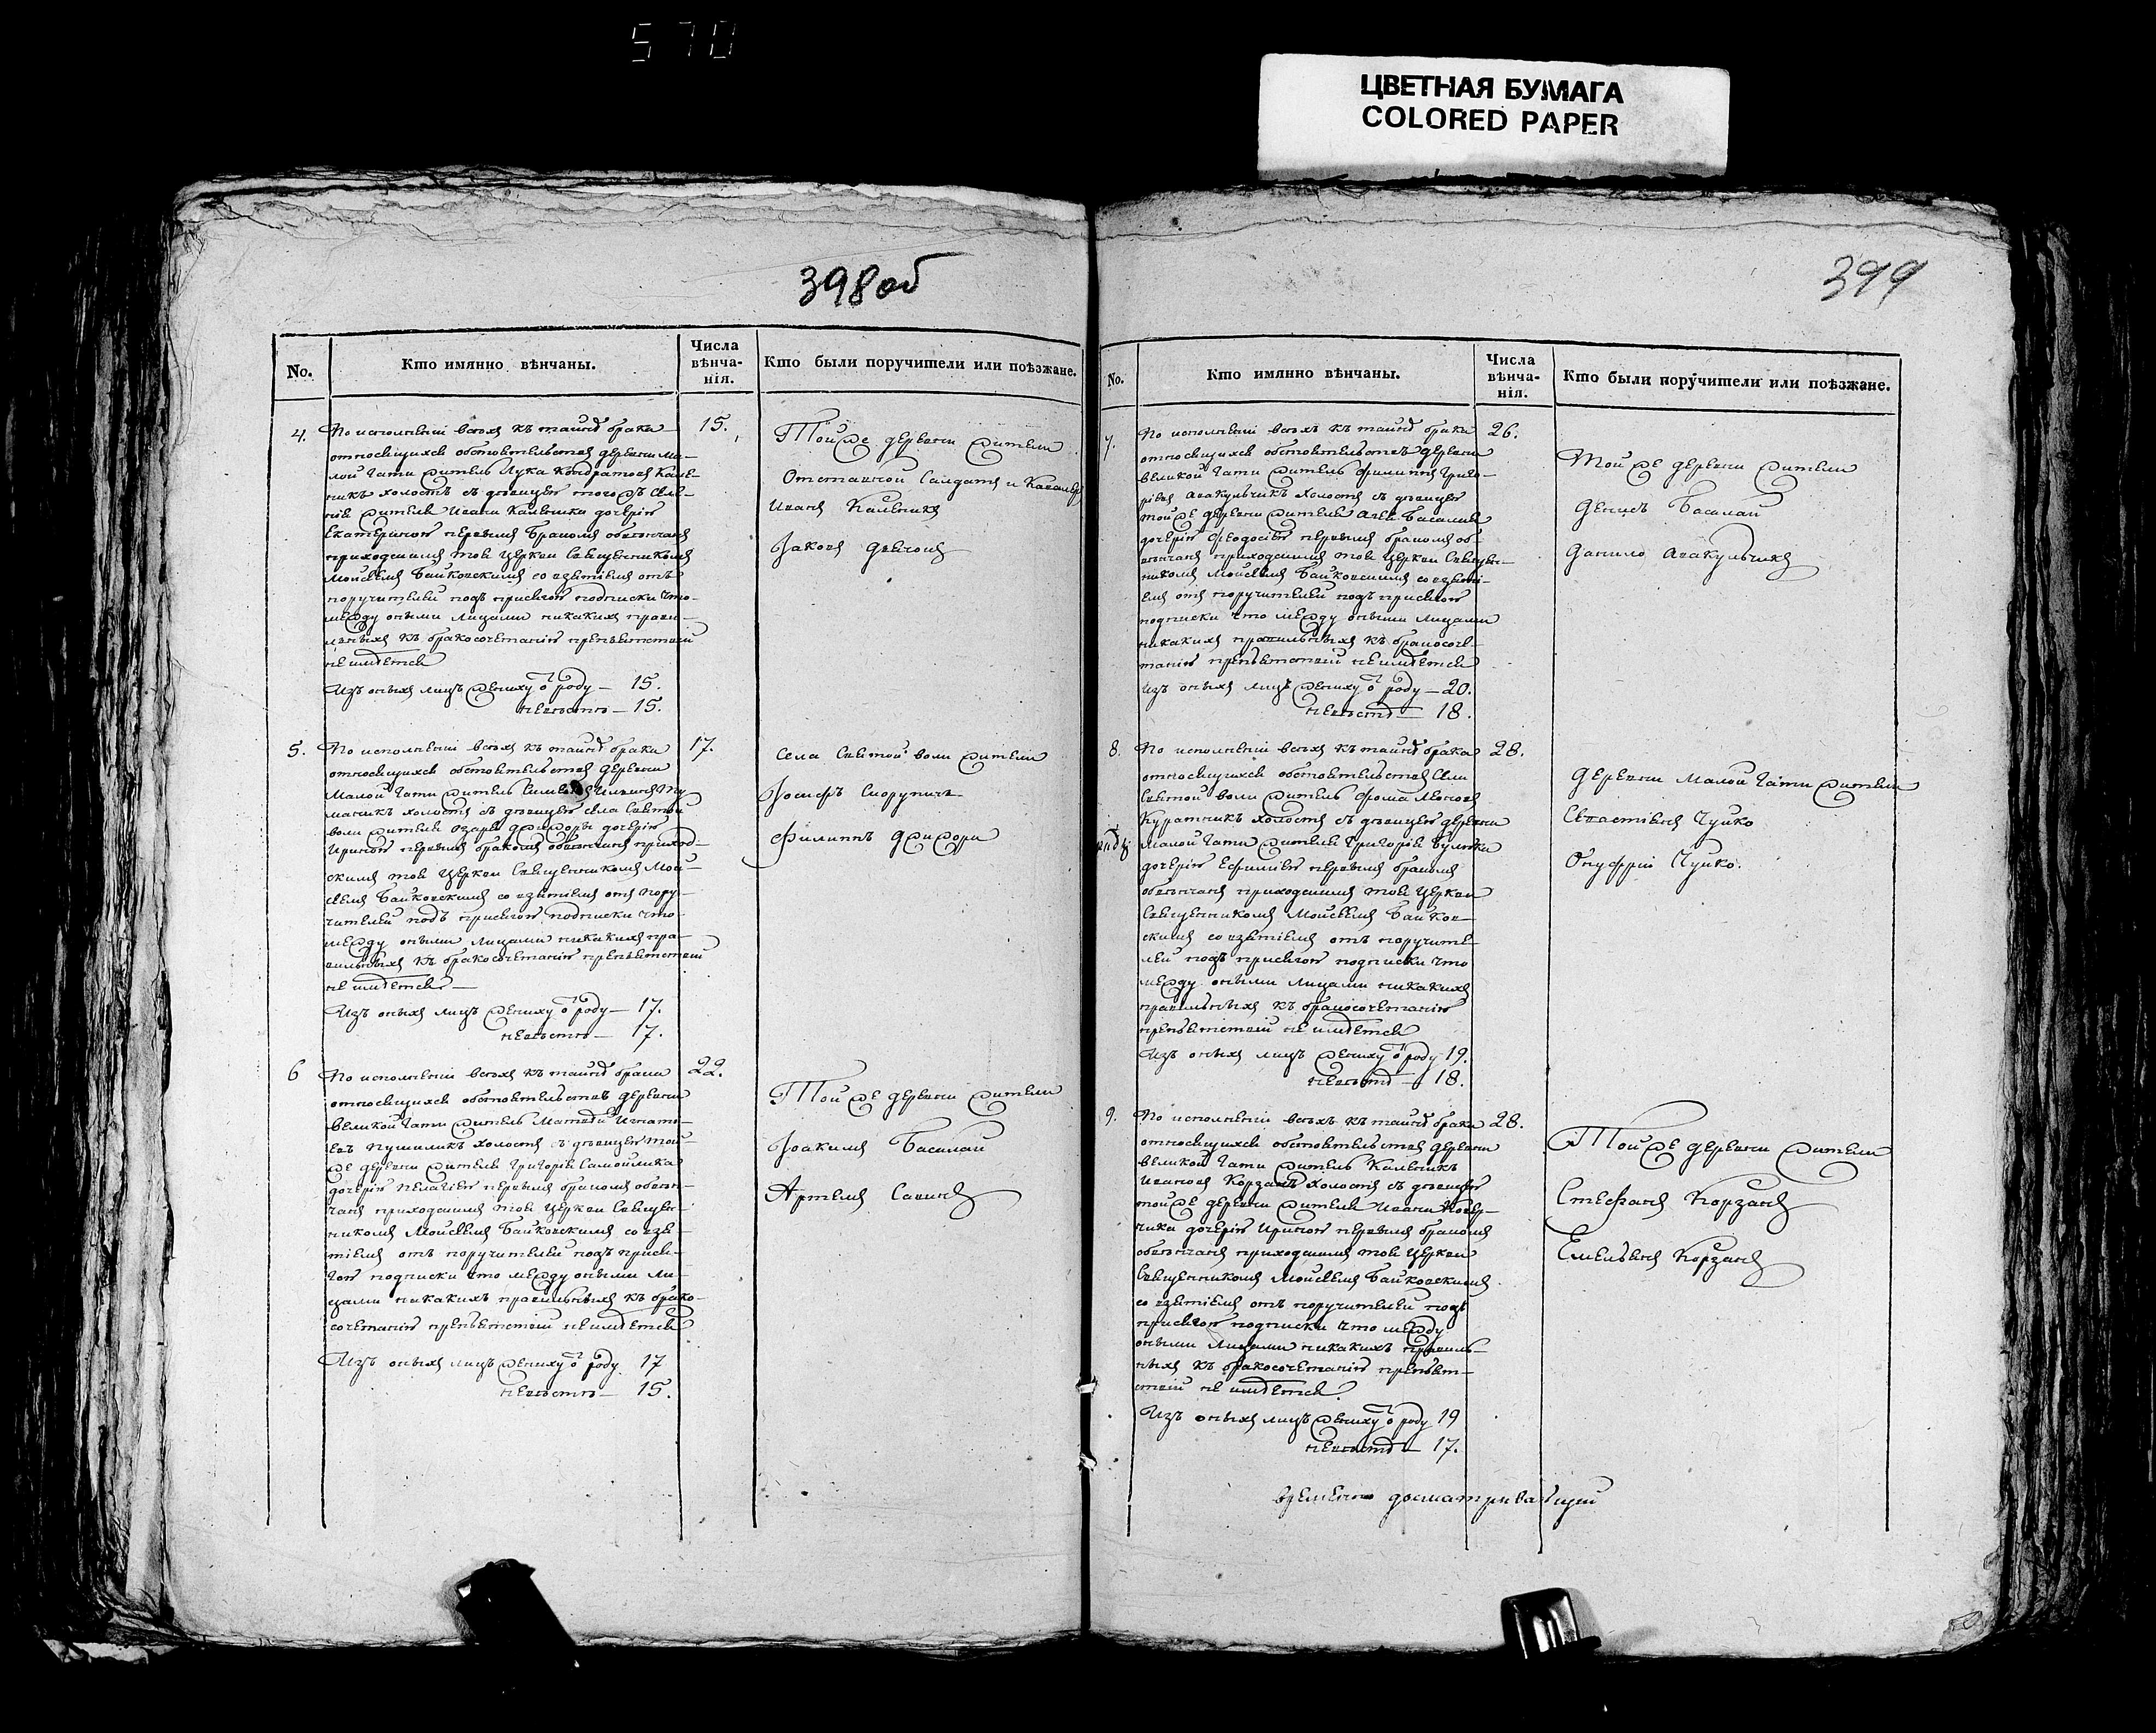 570
ЦВЕТНАЯ БУМАГА
COLORED PAPER
398 об
No.
Кто имянно вѣнчаны.
Числа
вѣнча-
нія.
Кто были поручители или поѣзжане.
4.
По исполненіи всѣхъ къ таинству брака
относящихся обстоятельствъ деревни Ма-
лой Гати житель Лука Кондратовъ Калё-
никъ холостъ съ дѣвицею того жъ селе-
нія жителя Ивана Каленика дочерію
Екатериною первымъ бракомъ обвѣнчанъ
приходскимъ тоя церкви священникомъ
Мойсеемъ Байковскимъ со взятіемъ отъ
поручителей подъ присягою подписки что
между оными лицами никакихъ прави-
льныхъ къ бракосочетанію препятствій
не имѣется
Изъ оныхъ лицъ жениху отъ роду — 15.
невѣстѣ — 15.
15.
Той же деревни жители
Отставной Салдатъ и Кавалеръ
Иванъ Каленикъ
Іаковъ
5.
По исполненіи всѣхъ къ таинству брака
относящихся обстоятельствъ деревни
Малой Гати житель
холостъ съ дѣвицею села Святой
воли жителя дочерію
Ириною первымъ бракомъ обвѣнчанъ приход-
скимъ тоя церкви священникомъ Мой-
сеемъ Байковскимъ со взятіемъ отъ пору-
чителей подъ присягою подписки что
между оными лицами никакихъ пра-
вильныхъ къ бракосочетанію препятствій
не имѣется —
Изъ оныхъ лицъ жениху отъ роду — 17.
невѣстѣ — 17.
17.
Села Святой воли жители
Іосифъ Скорупичъ
Филиппъ
6
По исполненіи всѣхъ къ таинству брака
относящихся обстоятельствъ деревни
Великой Гати житель Матвей Игнать-
евъ холостъ съ дѣвицею той
же деревни жителя Григорія Самойлика
дочерію Пелагіею первымъ бракомъ обвѣн-
чанъ приходскимъ тоя церкви священ-
никомъ Мойсеемъ Байковскимъ со взя-
тіемъ отъ поручителей подъ прися-
гою подписки что между оными ли-
цами никакихъ правильныхъ къ брако-
сочетанію препятствій не имѣется
Изъ оныхъ лицъ жениху отъ роду 17
невѣстѣ — 15.
22.
Той же деревни жители
Іоакимъ Басалай
Артемъ Савичъ
399
No.
Кто имянно вѣнчаны.
Числа
вѣнча-
нія.
Кто были поручители или поѣзжане.
7.
По исполненіи всѣхъ къ таинству брака
относящихся обстоятельствъ деревни
Великой Гати житель Филиппъ Григо-
ріевъ Авакульчикъ холостъ съ дѣвицею
той же деревни жителя Басалая
дочерію Феодосіею первымъ бракомъ об-
вѣнчанъ приходскимъ тоя церкви священ-
никомъ Мойсеемъ Байковскимъ со взяті-
емъ отъ поручителей подъ присягою
подписки что между оными лицами
никакихъ правильныхъ къ бракосоче-
танію препятствій не имѣется
Изъ оныхъ лицъ жениху отъ роду — 20.
невѣстѣ — 18.
26.
Той же деревни жители
Денисъ Басалай
Данило Авакульчикъ
8.
По исполненіи всѣхъ къ таинству брака
относящихся обстоятельствъ села
Святой воли житель Фома Леоновъ
Куратникъ холостъ съ дѣвицею деревни
Малой Гати жителя Григорія
дочерію Ефиміею первымъ бракомъ
обвѣнчанъ приходскимъ тоя церкви
священникомъ Мойсеемъ Байков-
скимъ со взятіемъ отъ поручите-
лей подъ присягою подписки что
между оными лицами никакихъ
правильныхъ къ бракосочетанію
препятствій не имѣется
Изъ оныхъ лицъ жениху отъ роду 19.
невѣстѣ — 18.
28.
Деревни Малой Гати жители
Севастіянъ Чуйко
Онуфрій Чуйко.
9.
По исполненіи всѣхъ къ таинству брака
относящихся обстоятельствъ деревни
Великой Гати житель Каленикъ
Ивановъ Корзанъ холостъ съ дѣвицею
той же деревни жителя Ивана
дочерію Ириною первымъ бракомъ
обвѣнчанъ приходскимъ тоя церкви
священникомъ Мойсеемъ Байковскимъ
со взятіемъ отъ поручителей подъ
присягою подписки что между
оными лицами никакихъ правиль-
ныхъ къ бракосочетанію препят-
ствій не имѣется.
Изъ оныхъ лицъ жениху отъ роду 19
невѣстѣ — 17.
28.
Той же деревни жители
Стефанъ Корзанъ
Емельянъ Корзанъ